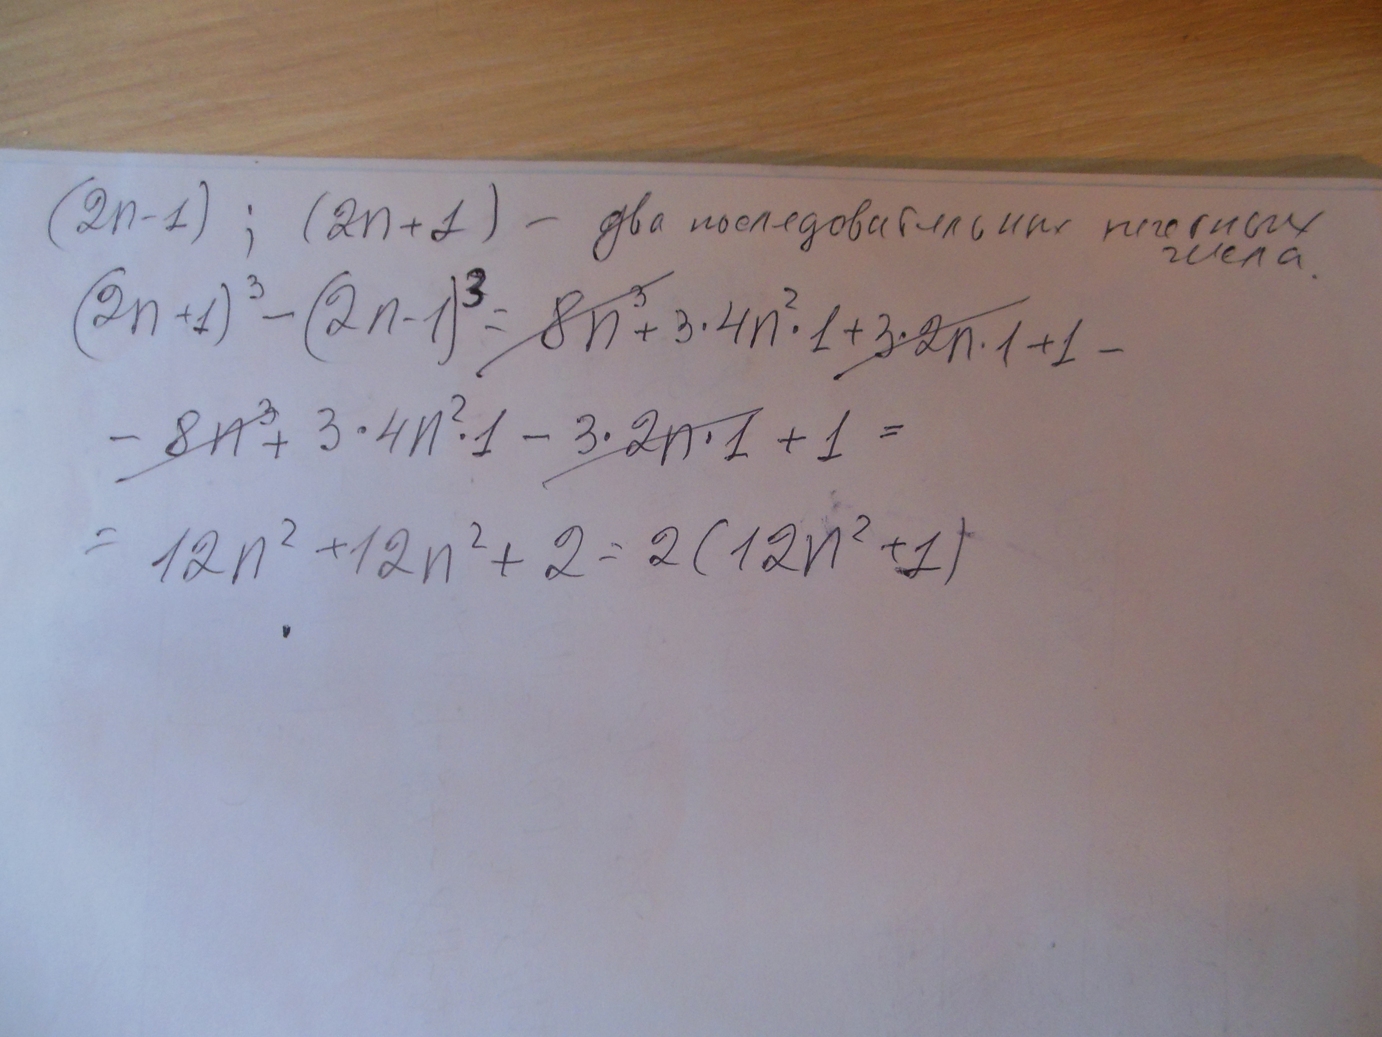 (2n-1) ; (2n+1) - два последовательных нечетных
числа.
(2n+1)³-(2n-1)³= 8n³+3·4n²·1+3·2n·1+1-
-8n³+3·4n²·1-3·2n·1+1=
=12n²+12n²+2=2(12n²+1)